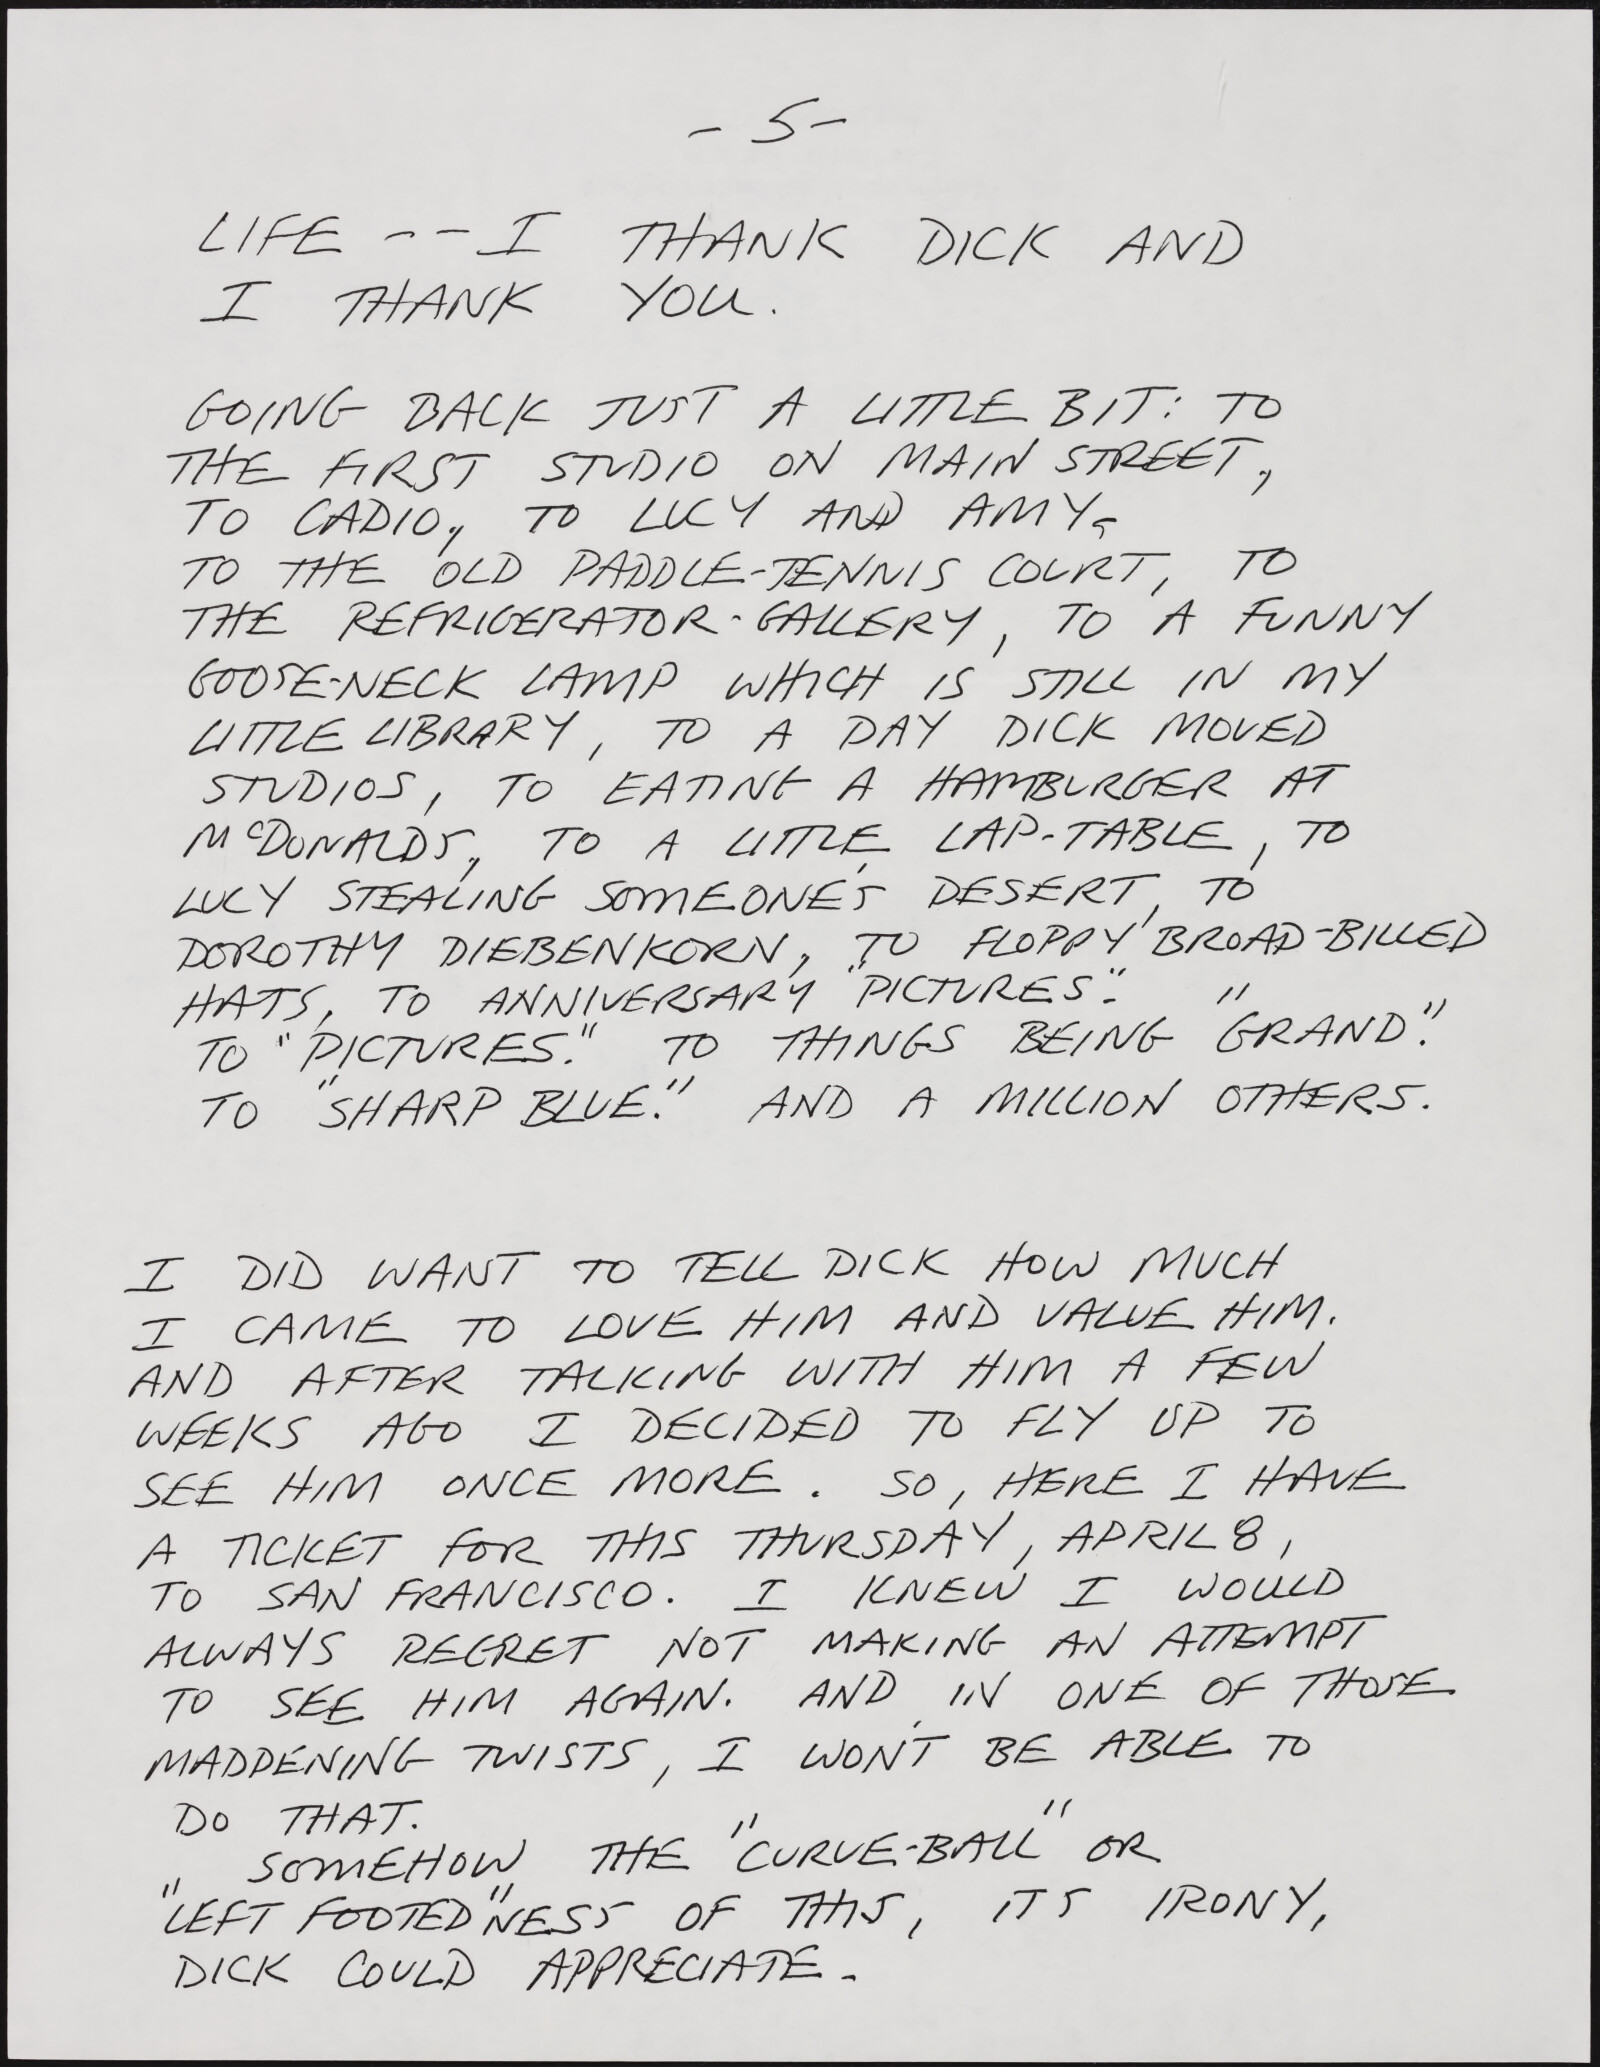 - 5 -
LIFE -- I THANK DICK AND
I THANK YOU.
GOING BACK JUST A LITTLE BIT: TO
THE FIRST STUDIO ON MAIN STREET,
TO CADIO, TO LUCY AND AMY,
TO THE OLD PADDLE-TENNIS COURT, TO
THE REFRIGERATOR-GALLERY, TO A FUNNY
GOOSE-NECK LAMP WHICH IS STILL IN MY
LITTLE LIBRARY, TO A DAY DICK MOVED
STUDIOS, TO EATING A HAMBURGER AT
McDONALDS, TO A LITTLE LAP-TABLE, TO
LUCY STEALING SOMEONE'S DESERT, TO
DOROTHY DIEBENKORN, TO FLOPPY BROAD-BILLED
HATS, TO ANNIVERSARY "PICTURES".
TO "PICTURES." TO THINGS BEING "GRAND."
TO "SHARP BLUE." AND A MILLION OTHERS.
I DID WANT TO TELL DICK HOW MUCH
I CAME TO LOVE HIM AND VALUE HIM.
AND AFTER TALKING WITH HIM A FEW
WEEKS AGO I DECIDED TO FLY UP TO
SEE HIM ONCE MORE. SO, HERE I HAVE
A TICKET FOR THIS THURSDAY, APRIL 8,
TO SAN FRANCISCO. I KNEW I WOULD
ALWAYS REGRET NOT MAKING AN ATTEMPT
TO SEE HIM AGAIN. AND IN ONE OF THOSE
MADDENING TWISTS, I WON'T BE ABLE TO
DO THAT.
SOMEHOW THE "CURVE-BALL" OR
"LEFT FOOTED"NESS OF THIS, ITS IRONY,
DICK COULD APPRECIATE.